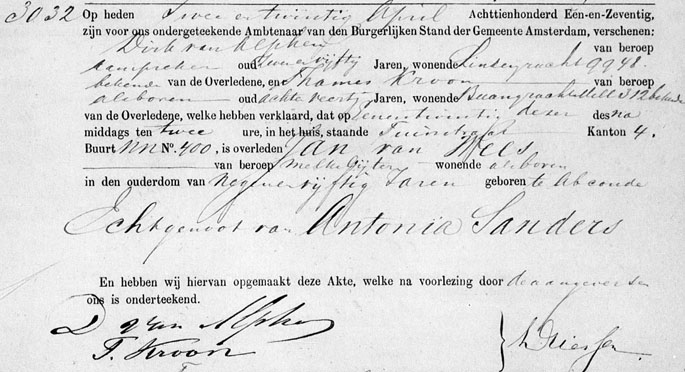 3032 Op heden Twee en twintig April Achttienhonderd Een-en-Zeventig,
zijn voor ons ondergeteekende Ambtenaar van den Burgerlijken Stand der Gemeente Amsterdam, verschenen:
Dirk van Alphen van beroep
aanspreker oud vijftig Jaren, wonende Lindengracht
bekende van de Overledene, en Thames Kroon van beroep
als boven oud acht en veertig Jaren, wonende 312 bekende
van de Overledene, welke hebben verklaard, dat op een en twintig dezer des na
middags ten twee ure, in het huis, staande Tuinstraat Kanton 4.
Buurt NN No. 400, is overleden Jan van Wees
van beroep melkslijter wonende als boven
in den ouderdom van negen en vijftig Jaren geboren te Abcoude
Echtgenoot van Antonia Sanders
En hebben wij hiervan opgemaakt deze Akte, welke na voorlezing door de aangevers en
ons is onderteekend.
D van Alphen
T. Kroon